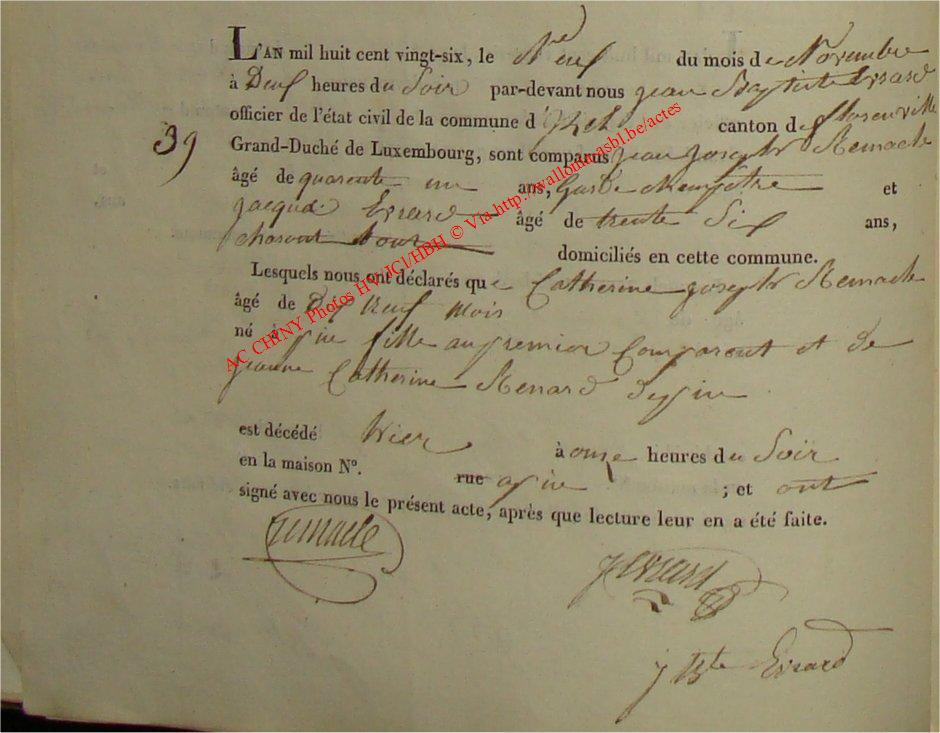 L'AN mil huit cent vingt-six, le Neuf du mois de Novembre
à Deux heures du Soir par-devant nous Jean Baptiste Evrard
officier de l'état civil de la commune d'Izel canton de florenville
39
Grand-Duché de Luxembourg, sont comparus Jean Joseph Remacle
âgé de quarente un ans, Garde Champêtre et
Jacque Evrard âgé de trente Six ans,
domiciliés en cette commune.
Lesquels nous ont déclarés que Catherine Joseph Remacle
âgé de Dix Neuf mois
né à pin fille au premier Comparent et de
Jeanne Catherine Renard de pin
est décédé hier à onze heures du Soir
en la maison N°. rue a pin ; et ont
signé avec nous le présent acte, après que lecture leur en a été faite.
remacle
J Evrard
J Bte Evrard
AC CHINY Photos HV/JCl/HBH © Via http://wallonia.asbl.be/actes